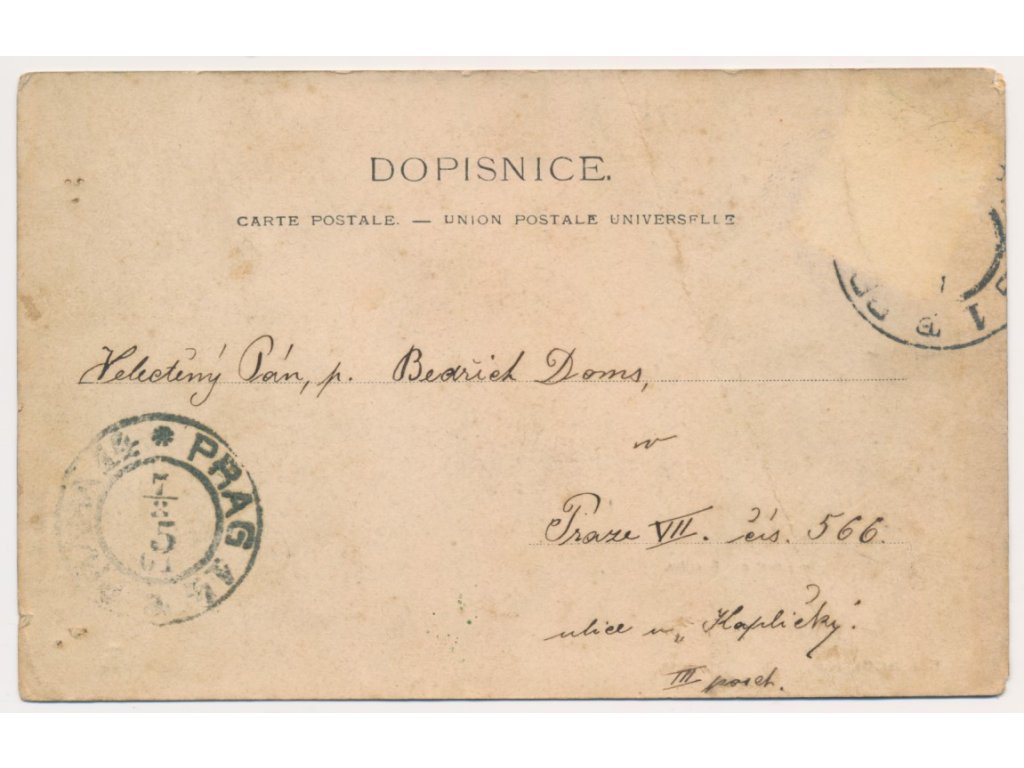 DOPISNICE.
CARTE POSTALE. — UNION POSTALE UNIVERSELLE
Velectěný Pán, p. Bedřich Doms,
w
Praze VII. čís. 566.
ulice u„ Kapličky.
III posch.
PRAG
7/8
5
01
1